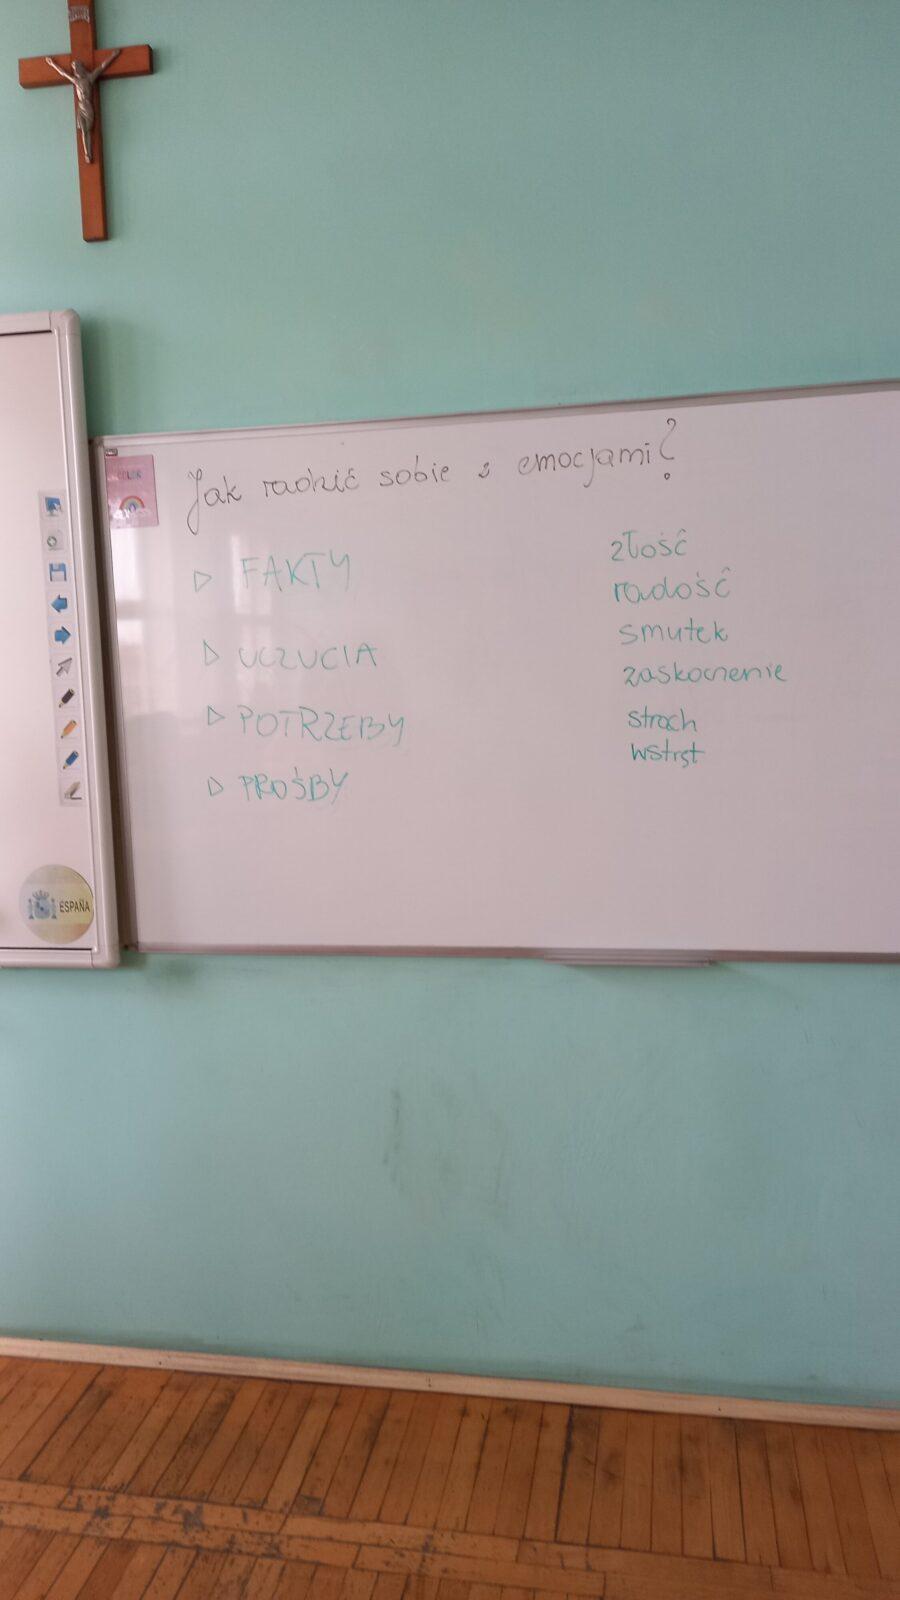 Jak radzić sobie z emocjami?
▷ FAKTY
▷ UCZUCIA
▷ POTRZEBY
▷ PROŚBY
złość
radość
smutek
zaskoczenie
strach
wstręt
ESPAÑA